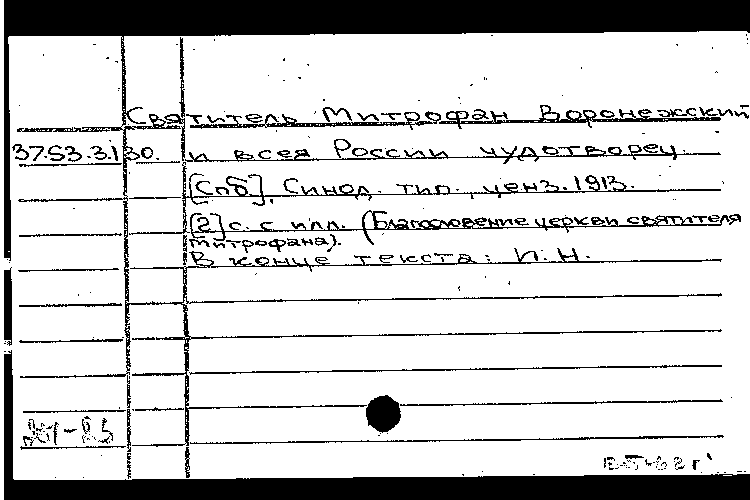 Святитель Митрофан Воронежский
37.53.3.130. и всея России чудотворец.
[Спб], Синод. тип., ценз. 1913.
[2] с. с илл. (Благословение церкви святителя
Митрофана).
В конце текста: И. Н.